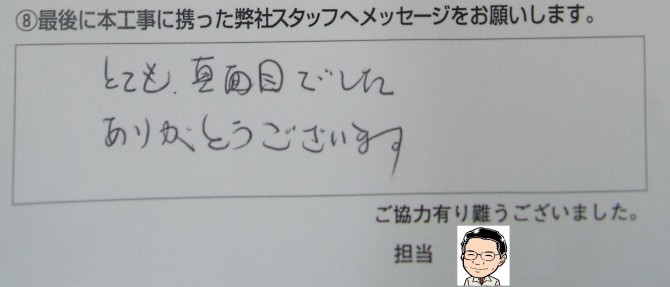 ⑧最後に本工事に携った弊社スタッフへメッセージをお願いします。
とても、真面目でした
ありがとうございます
ご協力有り難うございました。
担当